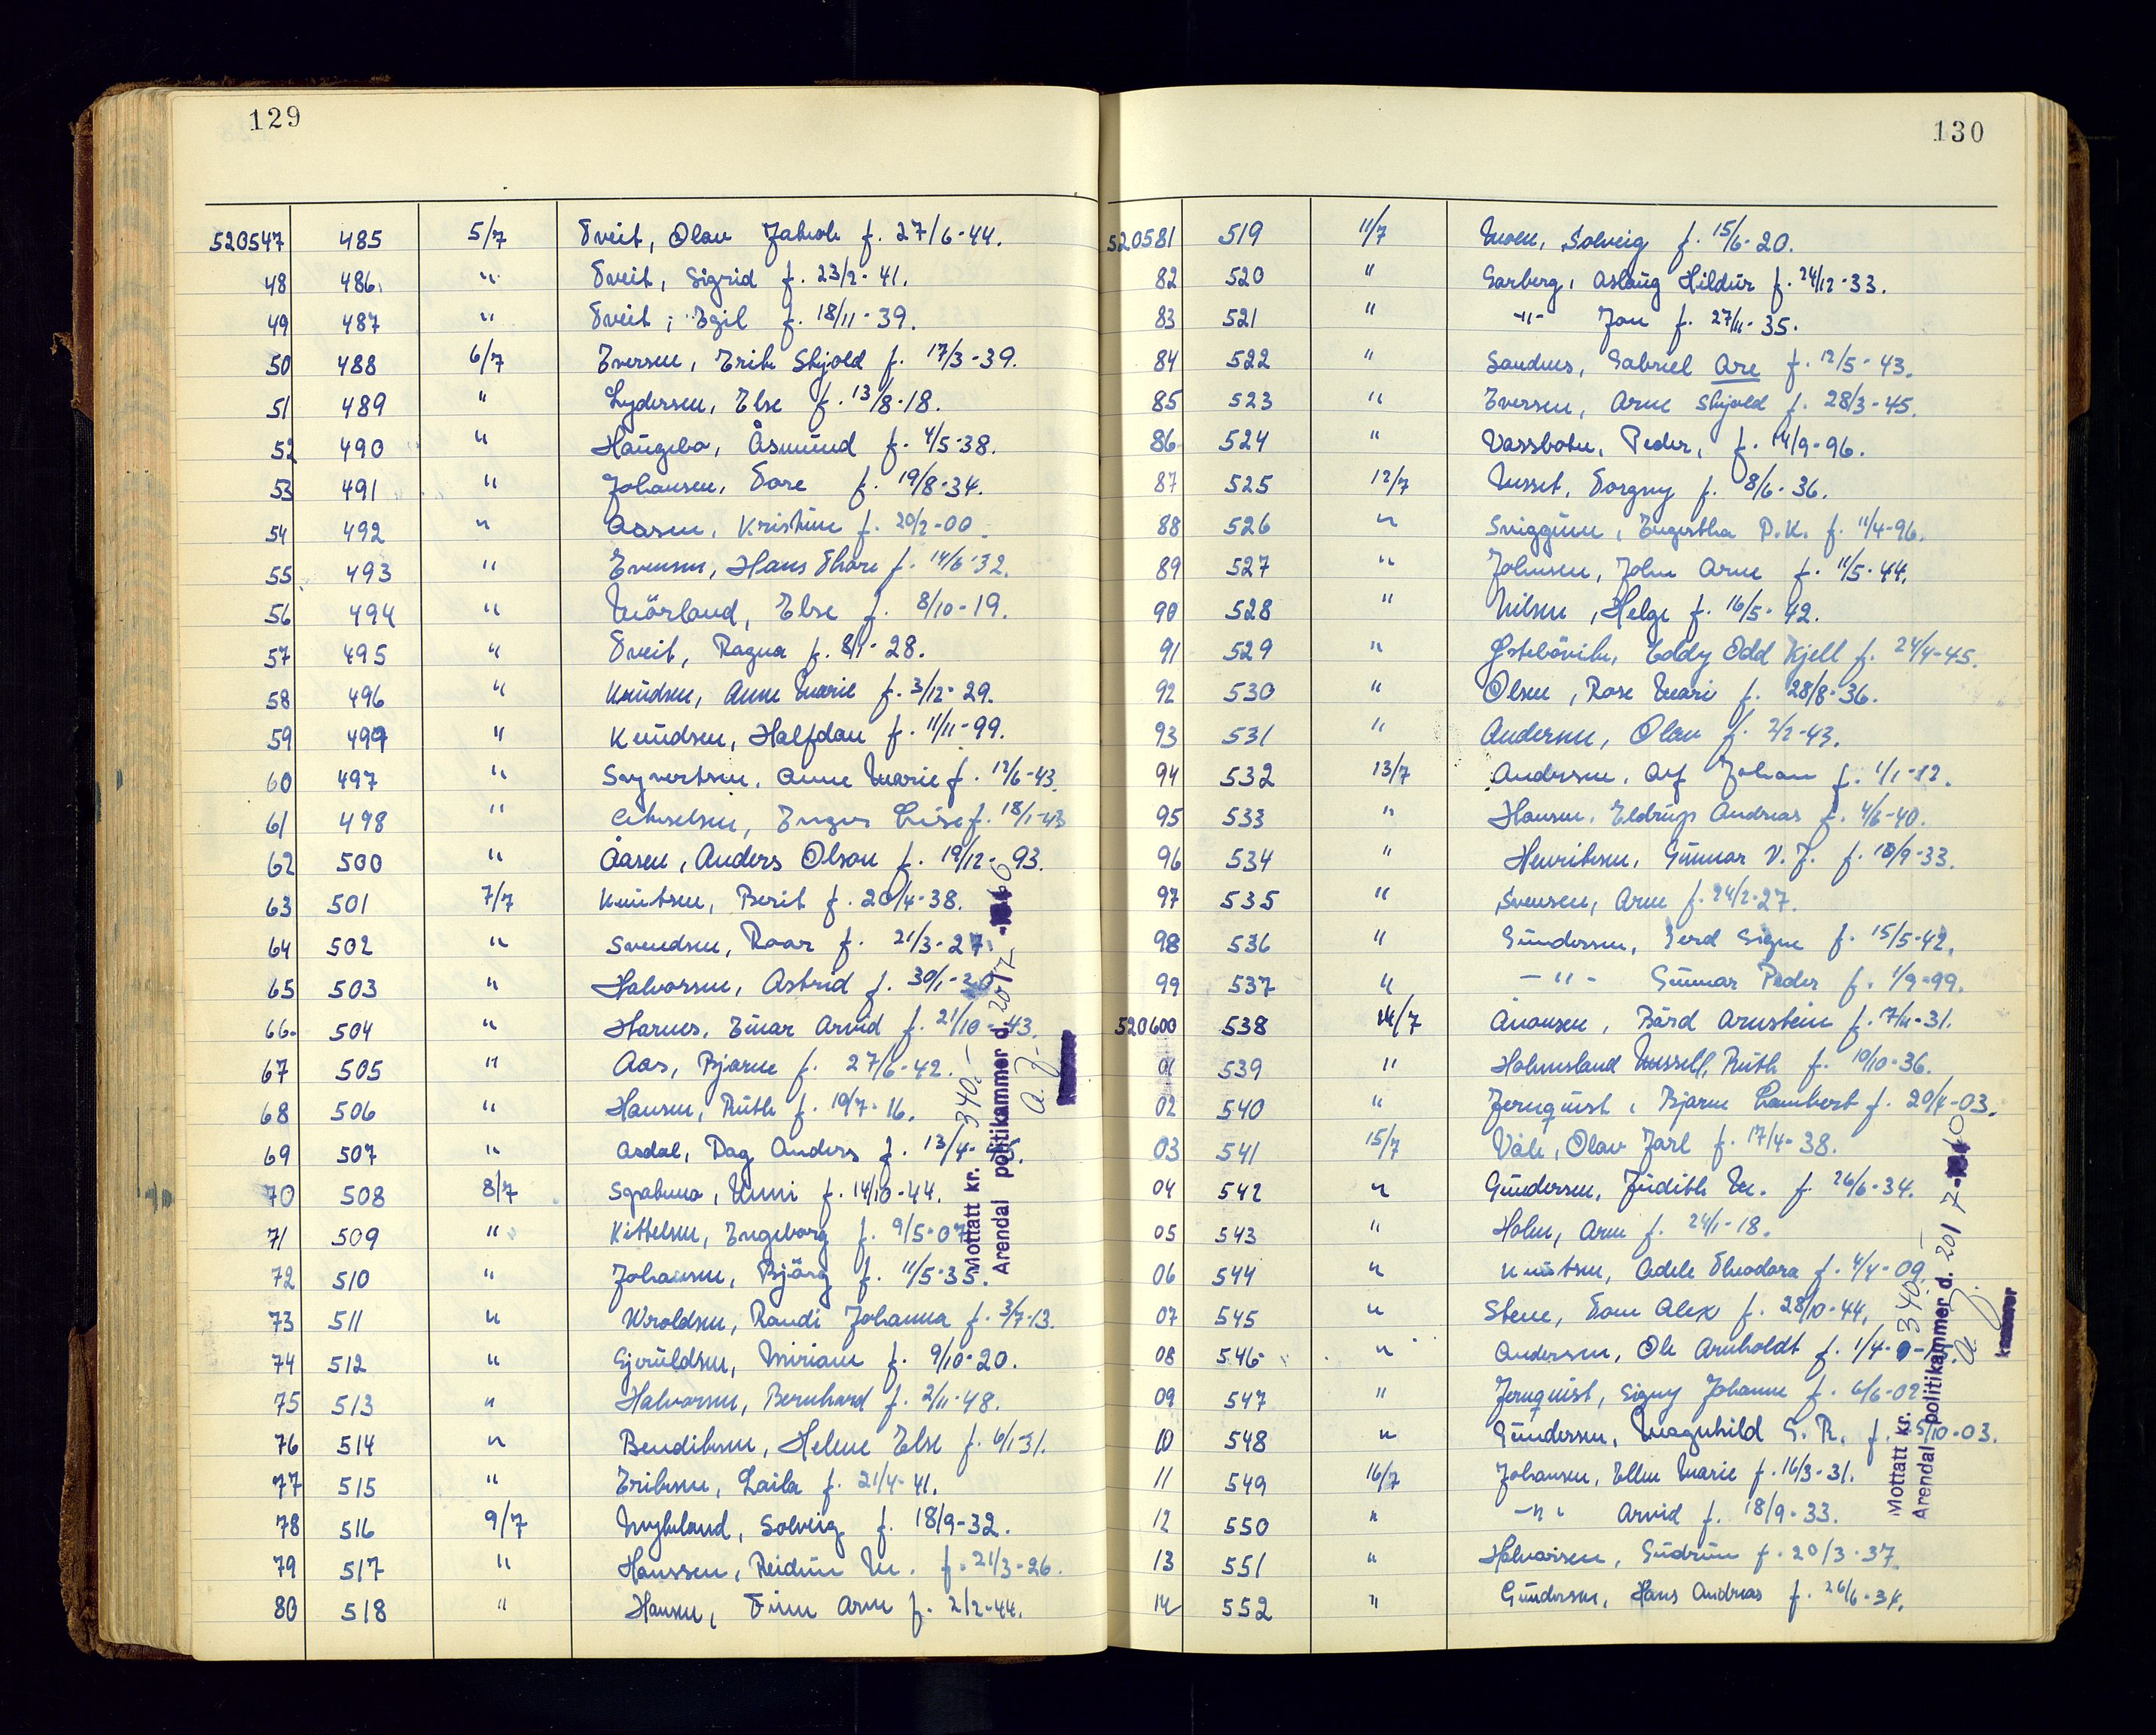 129
520547 485 5/7 Tveit, Olav Jakob f. 27/6-44.
48 486 " Tveit, Sigrid f. 23/2-41.
49 487 " Tveit, Egil f. 18/11-39.
50 488 6/7 Eversen, Erik Skjold f. 17/3-39.
51 489 " Lydersen, Else f. 13/8-18.
52 490 " Haugebo, Åsmund f. 4/5-38.
53 491 " Johansen, Tore f. 19/8-34.
54 492 " Aasen, Kristine f. 20/2-00
55 493 " Evensen, Hans Thore f. 14/6-32.
56 494 " Mörland, Else f. 8/10-19.
57 495 " Tveit, Ragna f. 8/1-28.
58 496 " Knudsen, Anne Marie f. 3/12-29.
59 499 " Knudsen, Halfdan f. 11/11-99.
60 497 " Syvertsen, Anne Marie f. 12/6-43.
61 498 " f. 18/1-43
62 500 " Aasen, Anders Olson f. 19/12-93.
63 501 7/7 Knutsen, Berit f. 20/4-38.
64 502 " Svendsen, Roar f. 21/3-27.
65 503 " Halvorsen, Astrid f. 30/1-20
66. 504 " Harnes, Einar Arvid f. 21/10-43.
67 505 " Aas, Bjarne f. 27/6-42.
68 506 " Hansen, Ruth f. 19/7-16.
69 507 " Asdal, Dag Anders f. 13/4-
70 508 8/7 Unni f. 14/10-44.
71 509 " Kittelsen, Engeborg f. 9/5-07
72 510 " Johansen, Bjørg f. 11/5-35.
73 511 " Wroldsen, Randi Johanna f. 3/7-13.
74 512 " Gjeruldsen, Miriam f. 9/10-20.
75 513 " Halvorsen, Bernhard f. 2/11-48.
76 514 " Bendiksen, Helene Else f. 6/1-31.
77 515 " Eriksen, Laila f. 21/4-41.
78 516 9/7 Mykland, Solveig f. 18/9-32.
79 517 " Hanssen, Reidun M. f. 21/3-26.
80 518 " Hansen, Finn Arne f. 2/2-44.
Mottatt kr. 340.-
Arendal politikammer d. 20/7-60
130
520581 519 11/7 Moen, Solveig f. 15/6-20.
82 520 " Garberg, Aslaug Hildur f. 24/12-33.
83 521 " -"- Jon f. 27/11-35.
84 522 " Sandnes, Gabriel Are f. 12/5-43.
85 523 " Eversen, Arne Skjold f. 28/3-45.
86 524 " Vassbotn, Peder, f. 14/9-96.
87 525 12/7 Torgny f. 8/6-36.
88 526 " Sviggum, P.K. f. 11/4-96.
89 527 " Johnsen, John Arne f. 11/5-44.
90 528 " Nilsen, Helge f. 16/5-42.
91 529 " Eddy Odd Kjell f. 24/4-45.
92 530 " Olsen, Rose Mari f. 28/8-36.
93 531 " Andersen, Olav f. 2/2-43.
94 532 13/7 Andersen, Alf Johan f. 1/1-12.
95 533 " Hansen, Eldrup Andreas f. 4/6-40.
96 534 " Henriksen, Gunnar V. J. f. 18/9-33.
97 535 " Svensen, Arne f. 24/2-27.
98 536 " Gundersen, Gerd Signe f. 15/5-42.
99 537 " -"- Gunnar Peder f. 1/9-99.
520600 538 14/7 Aanonsen, Bård Arnstein f. 17/11-31.
01 539 " Holmesland Mussell, Ruth f. 10/10-36.
02 540 " Jernquist, Bjarne Lambert f. 20/4-03.
03 541 15/7 Våle, Olav Jarl f. 17/4-38.
04 542 " Gundersen, Judith M. f. 26/6-34.
05 543 " Holm, Arne f. 24/1-18.
06 544 " Knutsen, Adele Theodora f. 4/4-09.
07 545 " Stene, Tom Alex f. 28/10-44.
08 546 " Andersen, Ole Arnholdt f. 1/4-
09 547 " Jernquist, Signy Johanne f. 6/6-02
10 548 " Gundersen, Magnhild G. R. f. 5/10-03.
11 549 16/7 Johansen, Ellen Marie f. 16/3-31.
12 550 " -"- Arvid f. 18/9-33.
13 551 " Halvorsen, Gudrun f. 20/3-37.
14 552 " Gundersen, Hans Andreas f. 26/6-34.
Mottatt kr. 340.-
Arendal politikammer d. 20/7-60